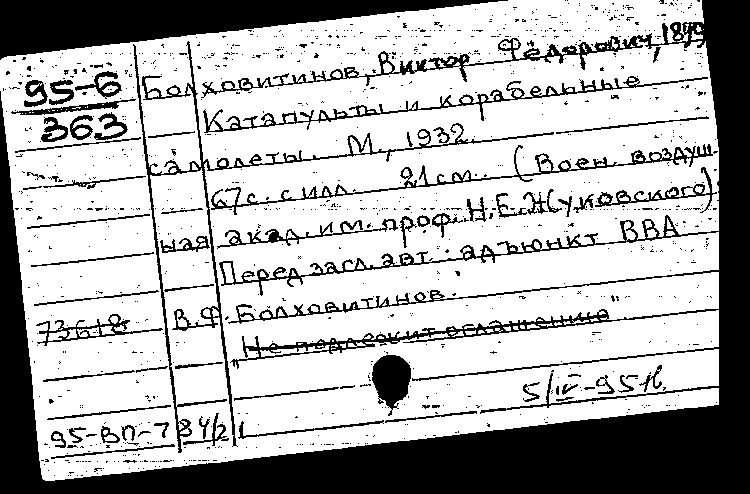 95-6
363
Болховитинов, Виктор Федорович, 1899
Катапульты и корабельные
самолеты. М., 1932.
67с. с илл. 21см. (Воен. воздуш-
ная акад. им. проф. Н.Е.Жуковского)
Перед загл. авт.: адъюнкт ВВА
В.Ф. Болховитинов.
73618
„Не подлежит оглашению"
5/IV-95
95-ВП-7 84/21